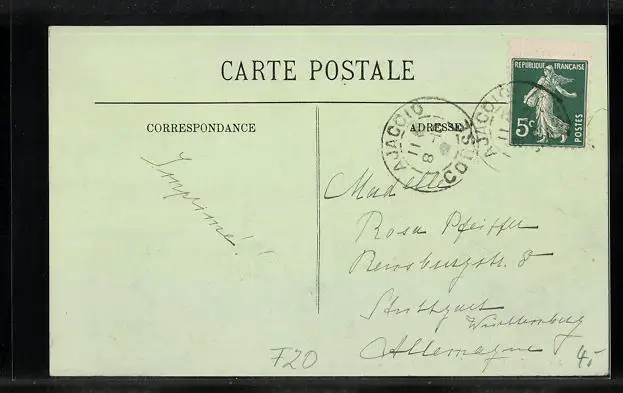 CARTE POSTALE
CORRESPONDANCE
ADRESSE
REPUBLIQUE FRANÇAISE
5c
POSTES
AJACCIO
CORSE
AJACCIO
Imprimé!!
Madelle
Rosa Pfeiffer
8
Stuttgart
Württemberg
Allemagne
F20
4,-